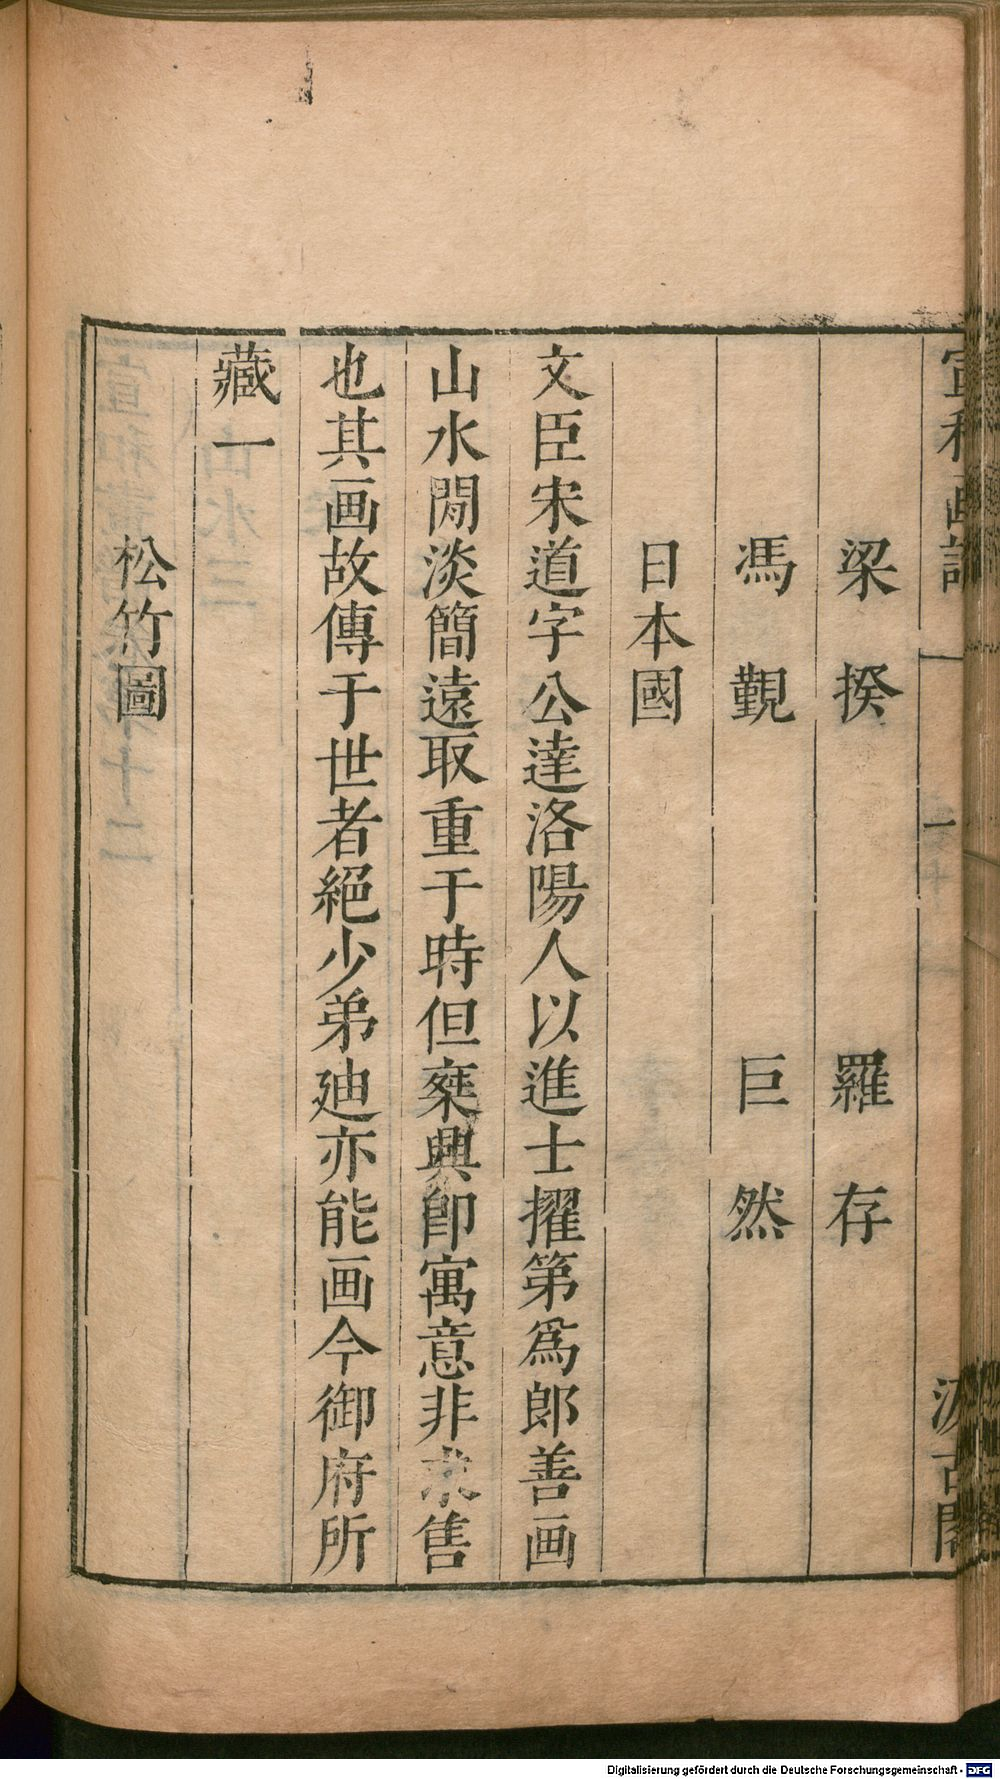 宣和画譜 一 汲古閣
梁揆 羅存
馮覲 巨然
日本國
文臣宋道字公達洛陽人以進士擢第爲郎善画
山水閒淡簡遠取重于時但乗興即寓意非求售
也其画故傳于世者絕少弟廸亦能画今御府所
藏一
松竹圖
Digitalisierung gefördert durch die Deutsche Forschungsgemeinschaft - DFG